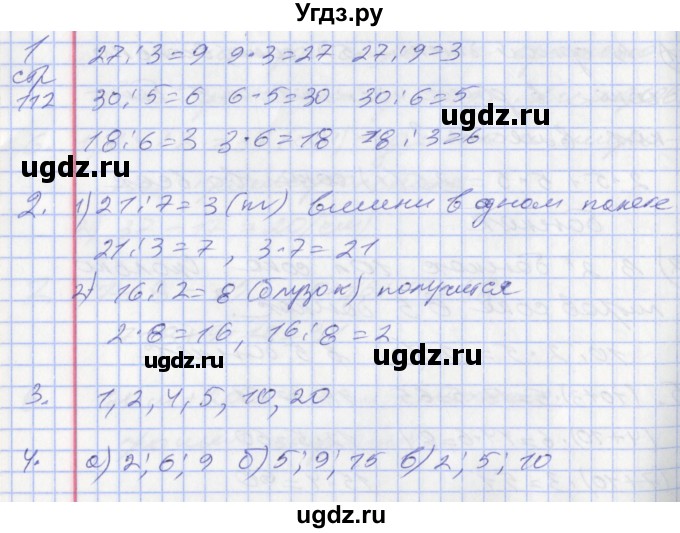 Угдз.ру
1 27:3=9 9·3=27 27:9=3
стр
112 30:5=6 6·5=30 30:6=5
18:6=3 3·6=18 18:3=6
ugdz.ru ugdz.ru
2. 1) 21:7=3 (м) в одном пакете
21:3=7, 3·7=21
2) 16:2=8 (блузок) получится
2·8=16, 16:8=2
ugdz.ru ugdz.ru
3. 1, 2, 4, 5, 10, 20
ugdz.ru
4. а) 2; 6; 9 б) 5; 9; 15 в) 2; 5; 10
ugdz.ru